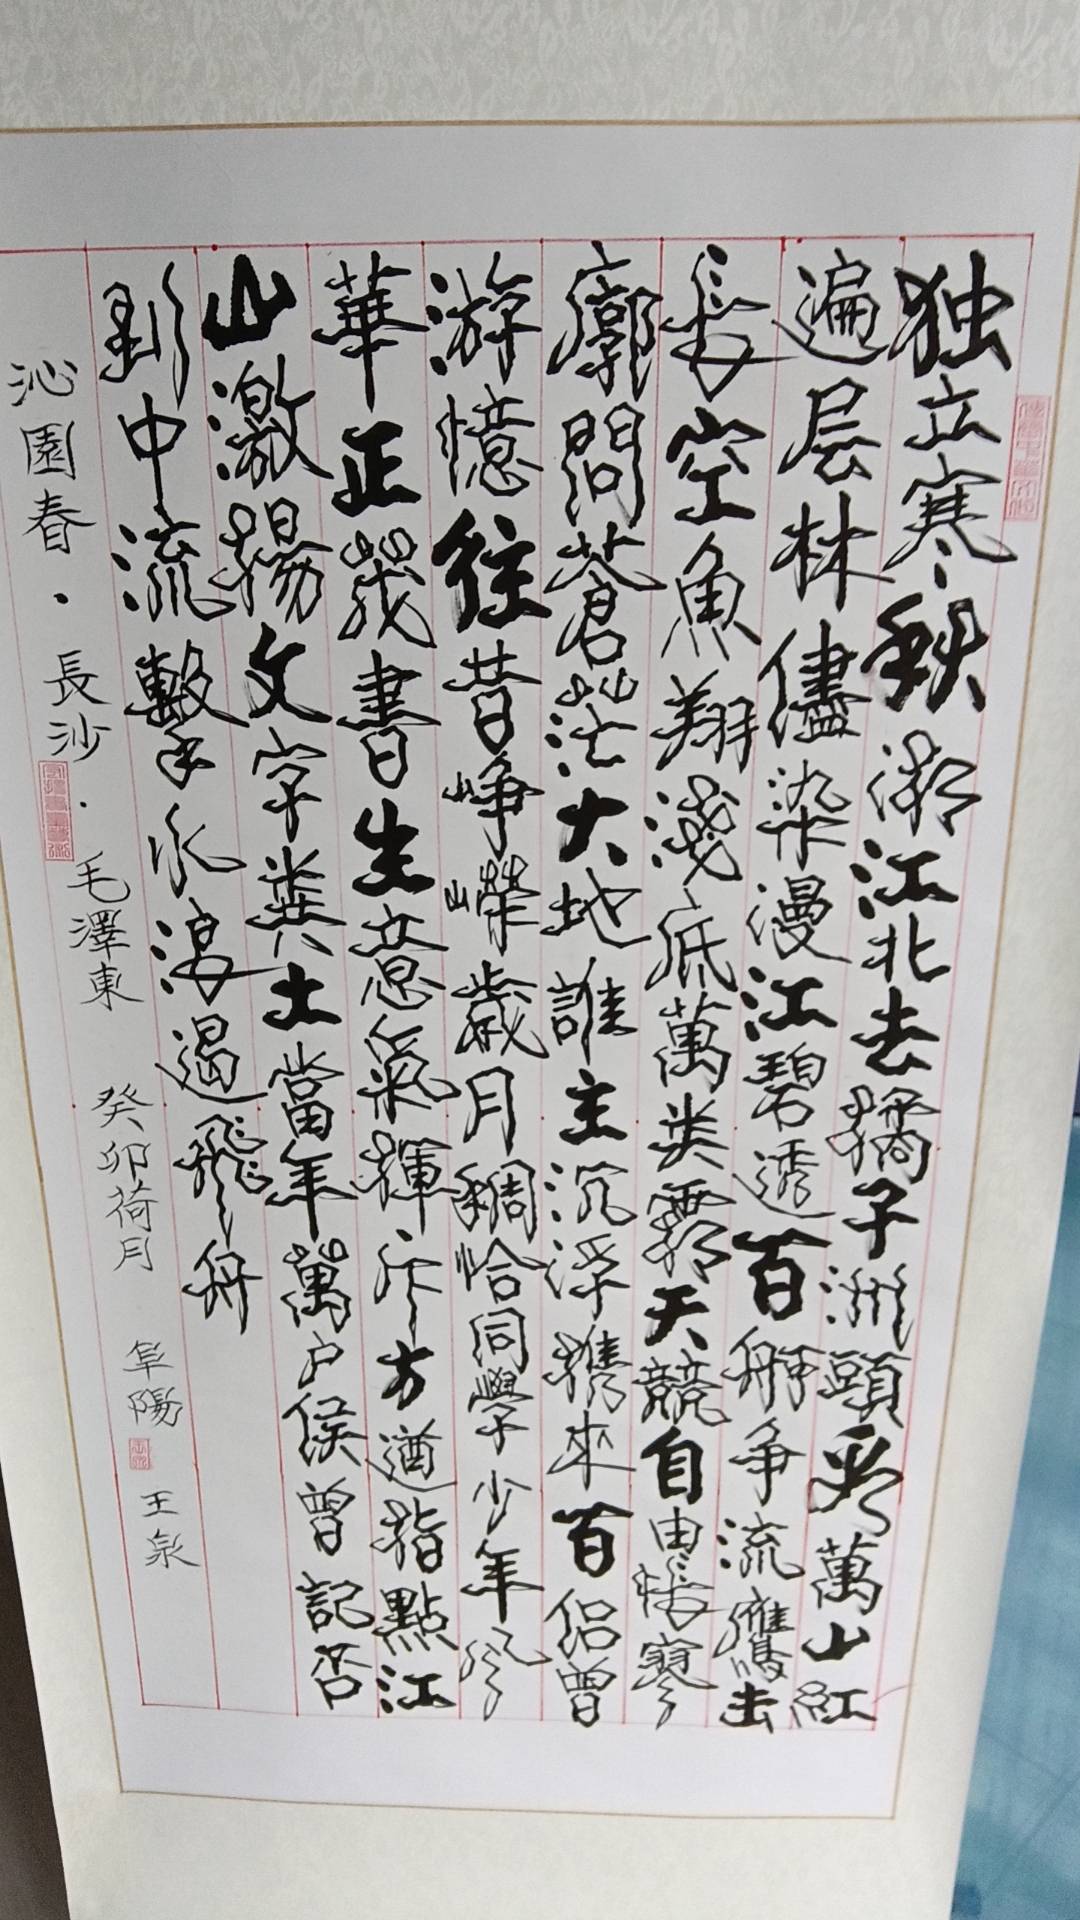 独立寒秋湘江北去橘子洲頭看萬山紅
遍层林儘染漫江碧透百舸争流鷹击
長空魚翔淺底萬类霜天競自由悵寥
廓問蒼茫大地誰主沉浮攜來百侣曾
游憶往昔崢嶸歲月稠恰同學少年风
華正茂書生意氣揮斥方遒指點江
山激揚文字粪土當年萬户侯曾記否
到中流擊水浪遏飛舟
沁園春·長沙·毛澤東 癸卯荷月 阜陽 王泉